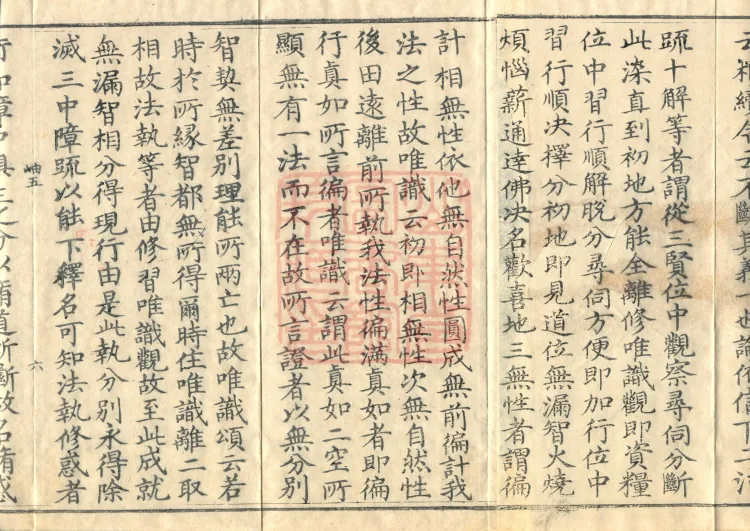 疏十解等者謂從三賢位中觀察尋伺分斷
此染直到初地方能全離修唯識觀即資糧
位中習行順解脫分尋伺方便即加行位中
習行順決擇分初地即見道位無漏智火燒
煩惱薪通達佛決名歡喜地三無性者謂徧
計相無性依他無自然性圓成無前徧計我
法之性故唯識云初即相無性次無自然性
後田遠離前所執我法性徧滿真如者即徧
行真如所言徧者唯識云謂此真如二空所
顯無有一法而不在故所言證者以無分別
智契無差別理能所兩亡也故唯識頌云若
時於所緣智都無所得爾時住唯識離二取
相故法執等者由修習唯識觀故至此成就
無漏智相分得現行由是此執分別永得除
滅三中障疏以能下釋名可知法執修惑者
岫五
六